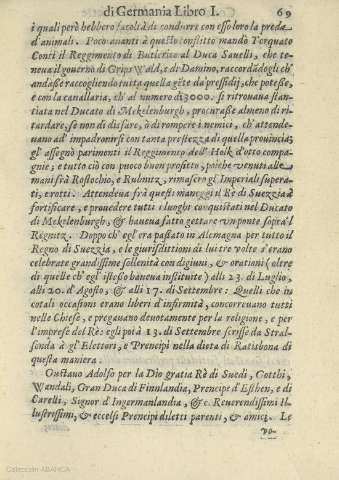 di Germania Libro I. 69
i quali però hebbero facoltà di condurre con esso loro la preda
d'animali. Poco auanti à questo conflitto mandò Torquato
Conti il Reggimento di Butlerico al Duca Sauelli, che te-
neua il gouerno di Grips Wald, e di Damino, raccordādogli ch'
andasse raccogliendo tutta quella gēte da pressidij, che potesse,
e con la cauallaria, ch' al numero di 3000. si ritrouaua stan-
tiata nel Ducato di Mekelenburgh, procurasse almeno di ri-
tardare, se non di disfare, ò di rompere i nemici, ch' attende-
uano ad impadronirsi con tanta prestezza di quella prouincia;
gl' assegnò parimenti il Reggimento dell' Holk d'otto compa-
gnie; e tutto ciò con puoco buon profitto, poiche venuti alle
mani frà Rostochio, e Rubnitz, rimasero gl' Imperiali supera-
ti, e rotti. Attendeua frà questi maneggi il Rè di Suezzia à
fortificare, e prouedere tutti i luoghi conquistati nel Ducato
di Mekelenburgh, & haueua fatto gettare un ponte sopra 'l
Regnitz. Doppo ch' egl' era passato in Alemagna per tutto il
Regno di Suezzia, e le giurisdittioni di lui tre volte s'erano
celebrate grandissime sollennità con digiuni, & orationi (oltre
di quelle ch' egl' istesso haueua instituite) alli 23. di Luglio,
alli 20. d'Agosto, & alli 17. di Settembre: Quelli che in
cotali occasioni erano liberi d'infirmità, concorreuano tutti
nelle Chiese, e pregauano deuotamente per la religione, e per
l'imprese del Rè: egli potà 13. di Settembre scrisse da Stral-
sonda à gl' Elettori, e Prencipi nella dieta di Ratisbona di
questa maniera.
Gustauo Adolfo per la Dio gratia Rè di Suedi, Gotthi,
Wandali, Gran Duca di Finnlandia, Prencipe d'Esthen, e di
Carelli, Signor d'Ingermanlandia, &c. Reuerendissimi Il-
lustrissimi, & eccelsi Prencipi diletti parenti, & amici. Le
vo-
Colección ABANCA